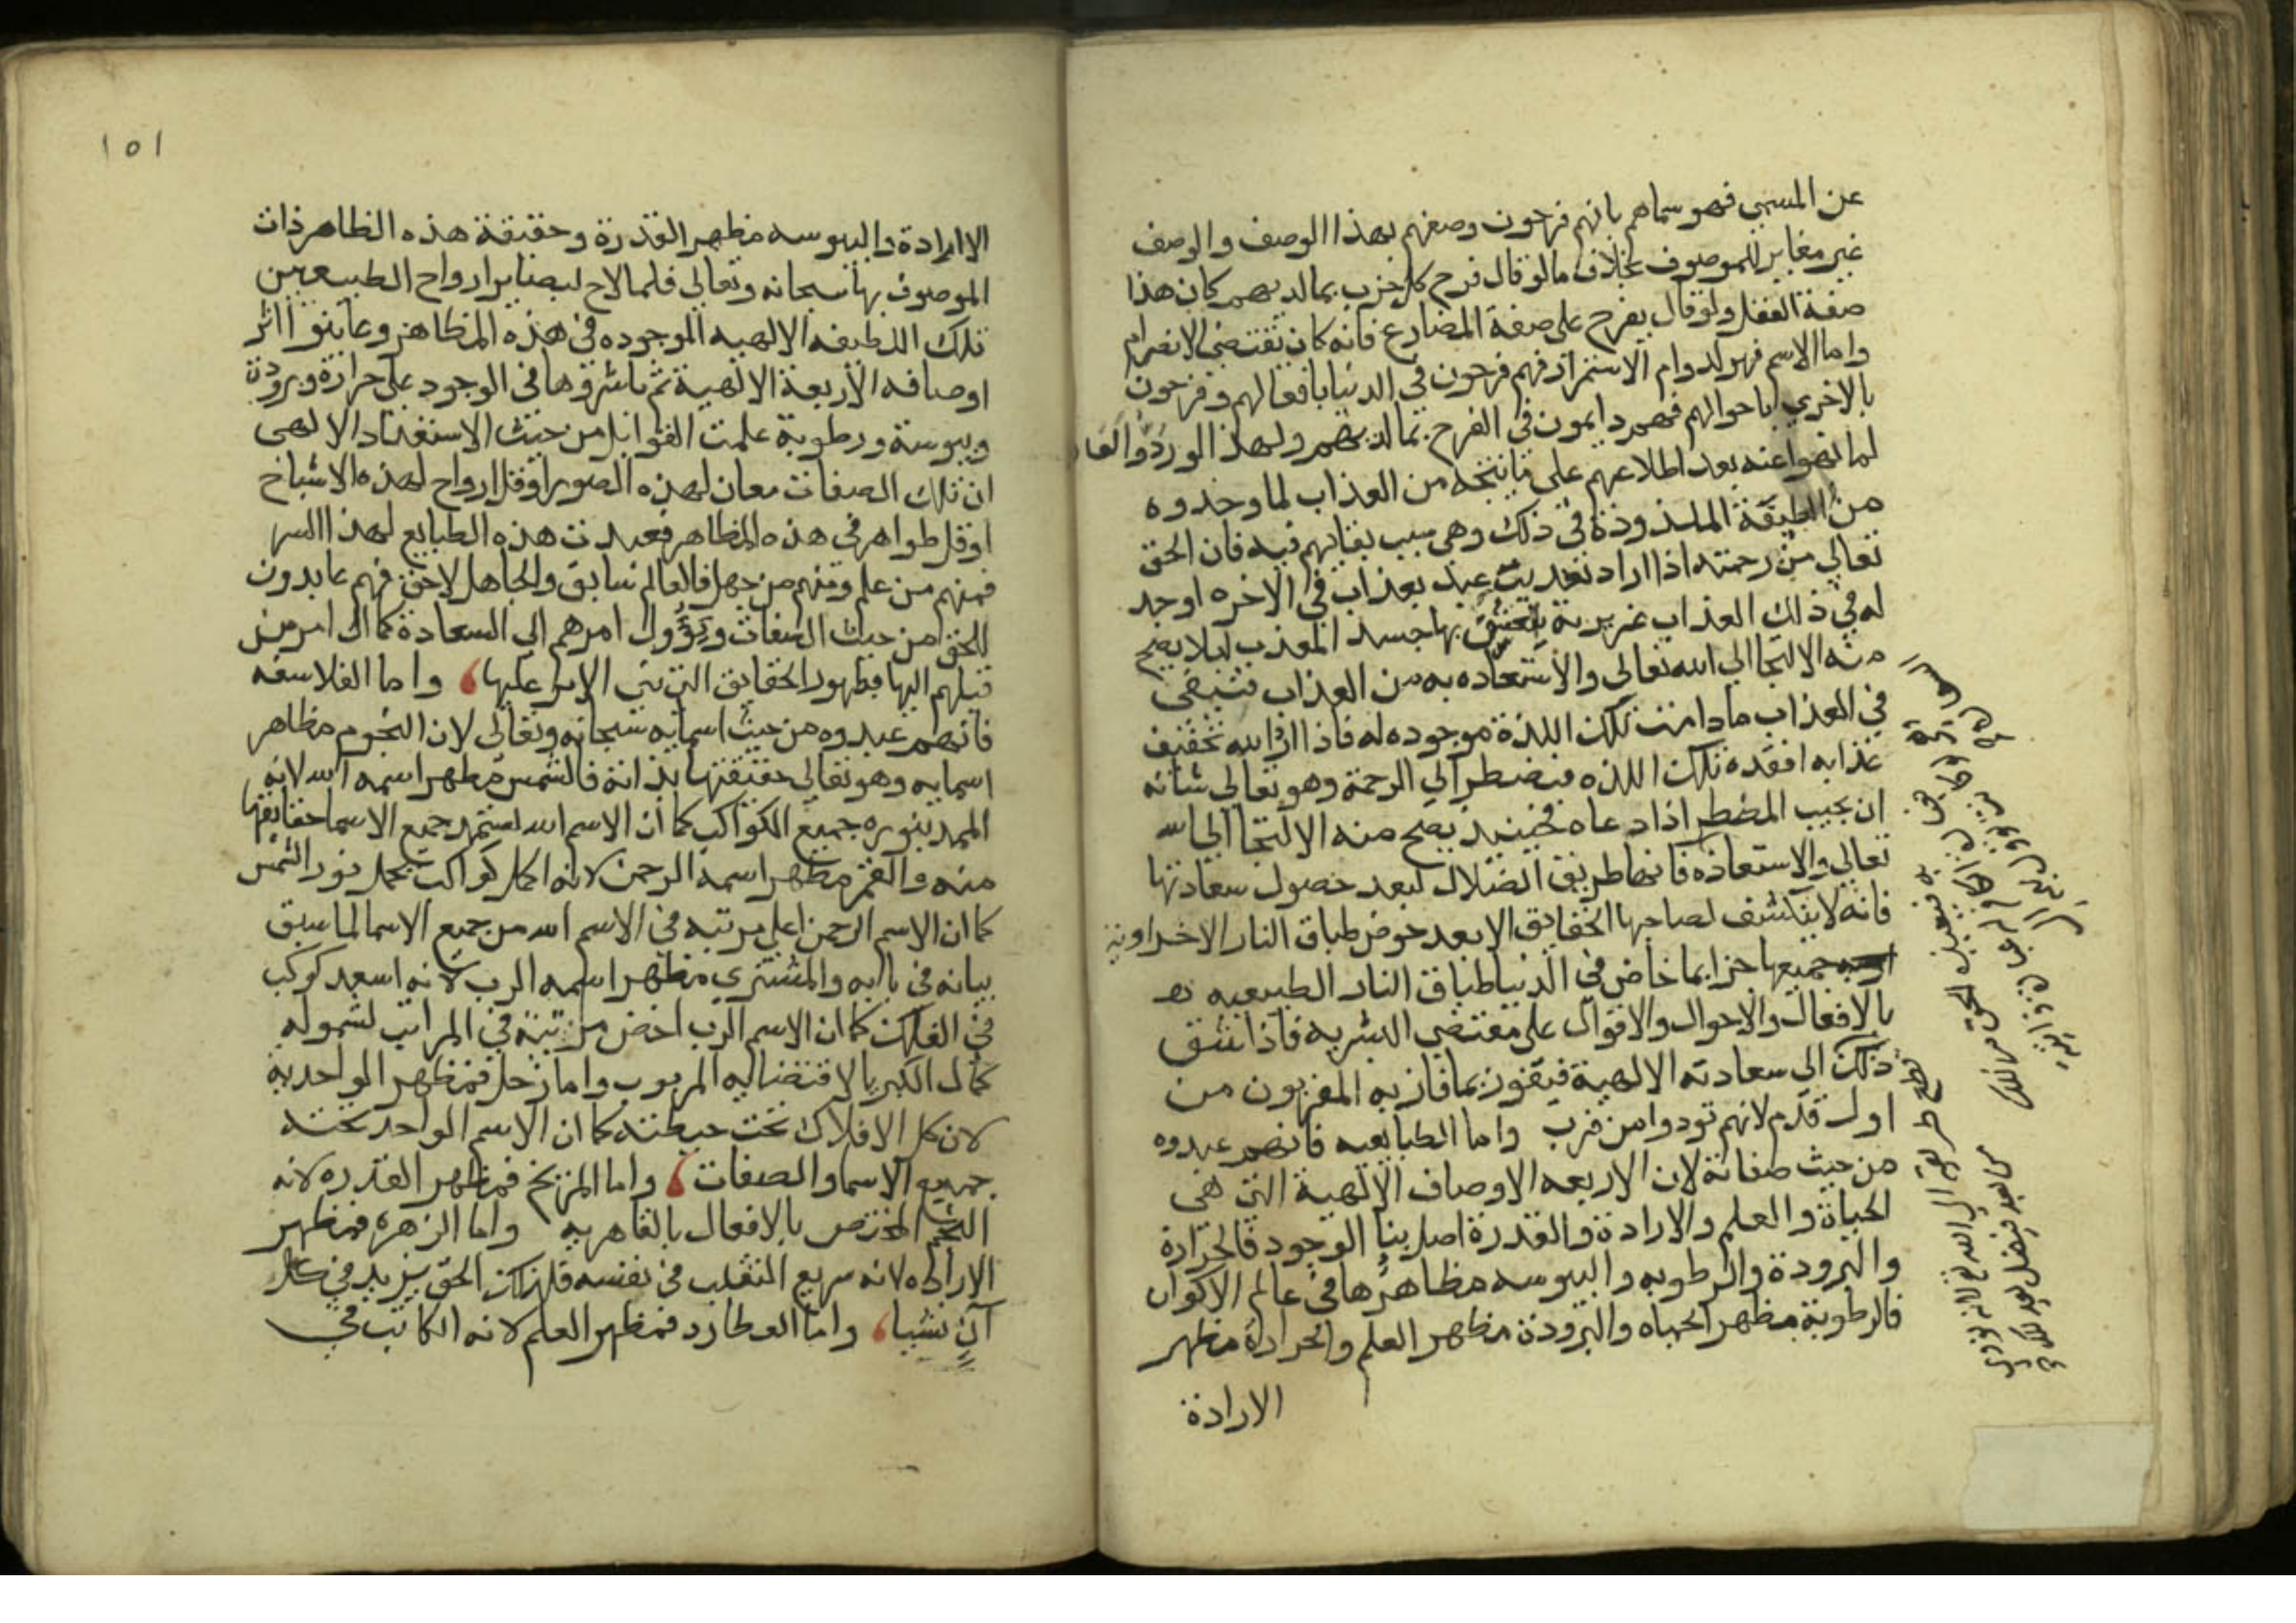 عن المسمي فهو سماهم بانهم فرحون وصفهم بهذا الوصف والوصف
غير مغاير للموصوف بخلاف ما لو قال فرح كل حزب بما لديهم كان هذا
صفة الفعل ولو قال يفرح على صفة المضارع فانه كان تقتضي الانصرام
واما الاسم فهو لدوام الاستمرار فهم فرحون في الدنيا بافعالهم وفرحون
بالاخري باحوالهم فهم دايمون في الفرح بما لديهم ولهذا لو ردوا لعادوا
لما نهوا عنه بعد اطلاعهم على ما ينتجه من العذاب لما وجدوه
من الطيفة الملذوذة في ذلك وهي سبب بقائهم فيه فان الحق
تعالى من رحمته اذا اراد تعذيب عبد بعذاب في الاخره اوجد
له في ذلك العذاب غريزية يتعشق بها جسد المعذب ليلا يصح
منه الالتجا الي الله تعالى والاستعاذه به من العذاب فيبقى
في العذاب ما دامت تلك اللذة موجوده له فاذا اراد الله تخفيف
عذابه افقده تلك اللذه فيضطر الي الرحمة وهو تعالى شانه
ان يجيب المضطر اذا دعاه فحينيذ يصح منه الالتجا الي الله
تعالى والاستعاذه
فانها طريق الضلال لبعد حصول سعادتها
فانه لا ينكشف لصاحبها الحقايق الا بعد خوض طباق النار الاخراوية
جميعها جزا بما خاض في الدنيا طباق النار الطبيعيه
بالافعال والاحوال والاقوال على مقتضي البشريه فاذا
ذلك الى سعادته الالهية فيفوز بما فاز به المقربون من
اول قدم لانهم نودوا من قرب واما الطبايعيه فانهم عبدوه
من حيث صفاته لان الاربعه الاوصاف الالهية التي هي
الحياة والعلم والارادة والقدرة اصل بنا الوجود فالحرارة
والبرودة والرطوبه واليبوسه مظاهرها في عالم الاكوان
فالرطوبة مظهر الحياه والبرودة مظهر العلم والحرارة مظهر
الارادة
١٥١
الارادة واليبوسه مظهر القدرة وحقيقة هذه الظاهر ذات
الموصوف بها سبحانه وتعالى فلما لاح لبصاير ارواح الطبيعيين
تلك اللطيفه الالهيه الموجوده في هذه المظاهر وعاينوا اثر
اوصافه الاربعة الالهية ثم باشروها في الوجود على حرارة وبرودة
ويبوسة ورطوبة علمت القوابل من حيث الاستعداد الالهى
ان تلك الصفات معان لهذه الصور او قل ارواح لهذه الاشباخ
او قل ظواهر في هذه المظاهر فعبدت هذه الطبايع لهذا السر
فمنهم من علم ومنهم من جهل فالعالم سابق والجاهل لاحق فهم عابدون
للحق من حيث الصفات ويؤول امرهم الي السعادة كما ال امر من
قبلهم اليها بظهور الحقايق التي بني الامر عليها، واما الفلاسفه
فانهم عبدوه من حيث اسمايه سبحانه وتعالى لان النجوم مظاهر
اسمايه وهو تعالى حقيقتها بذاته فالشمس مظهر اسمه الله لانه
الممد بنوره جميع الكواكب كما ان الاسم الله تستمد جميع الاسما حقايقها
منه والقمر مظهر اسمه الرحمن لانه اكمل كواكب يحمل نور الشمس
كما ان الاسم الرحمن اعلى مرتبه في الاسم الله من جميع الاسما لما سبق
بيانه في بابه والمشتري مظهر اسمه الرب لانه اسعد كوكب
في الفلك كما ان الاسم الرب اخص مرتبة في المراتب لشموله
كمال الكبريا لاقتضائه المربوب واما زحل فمظهر الواحديه
لان كل الافلاك تحت حيطته كما ان الاسم الواحد تحته
جميع الاسما والصفات، واما المريخ فمظهر القدره لانه
النجم المختص بالافعال بالقاهريه واما الزهره فمظهر
الارادة لانه سريع التقلب في نفسه فلذلك الحق يريد في كل
آن شيا، واما العطارد فمظهر العلم لانه الكاتب في